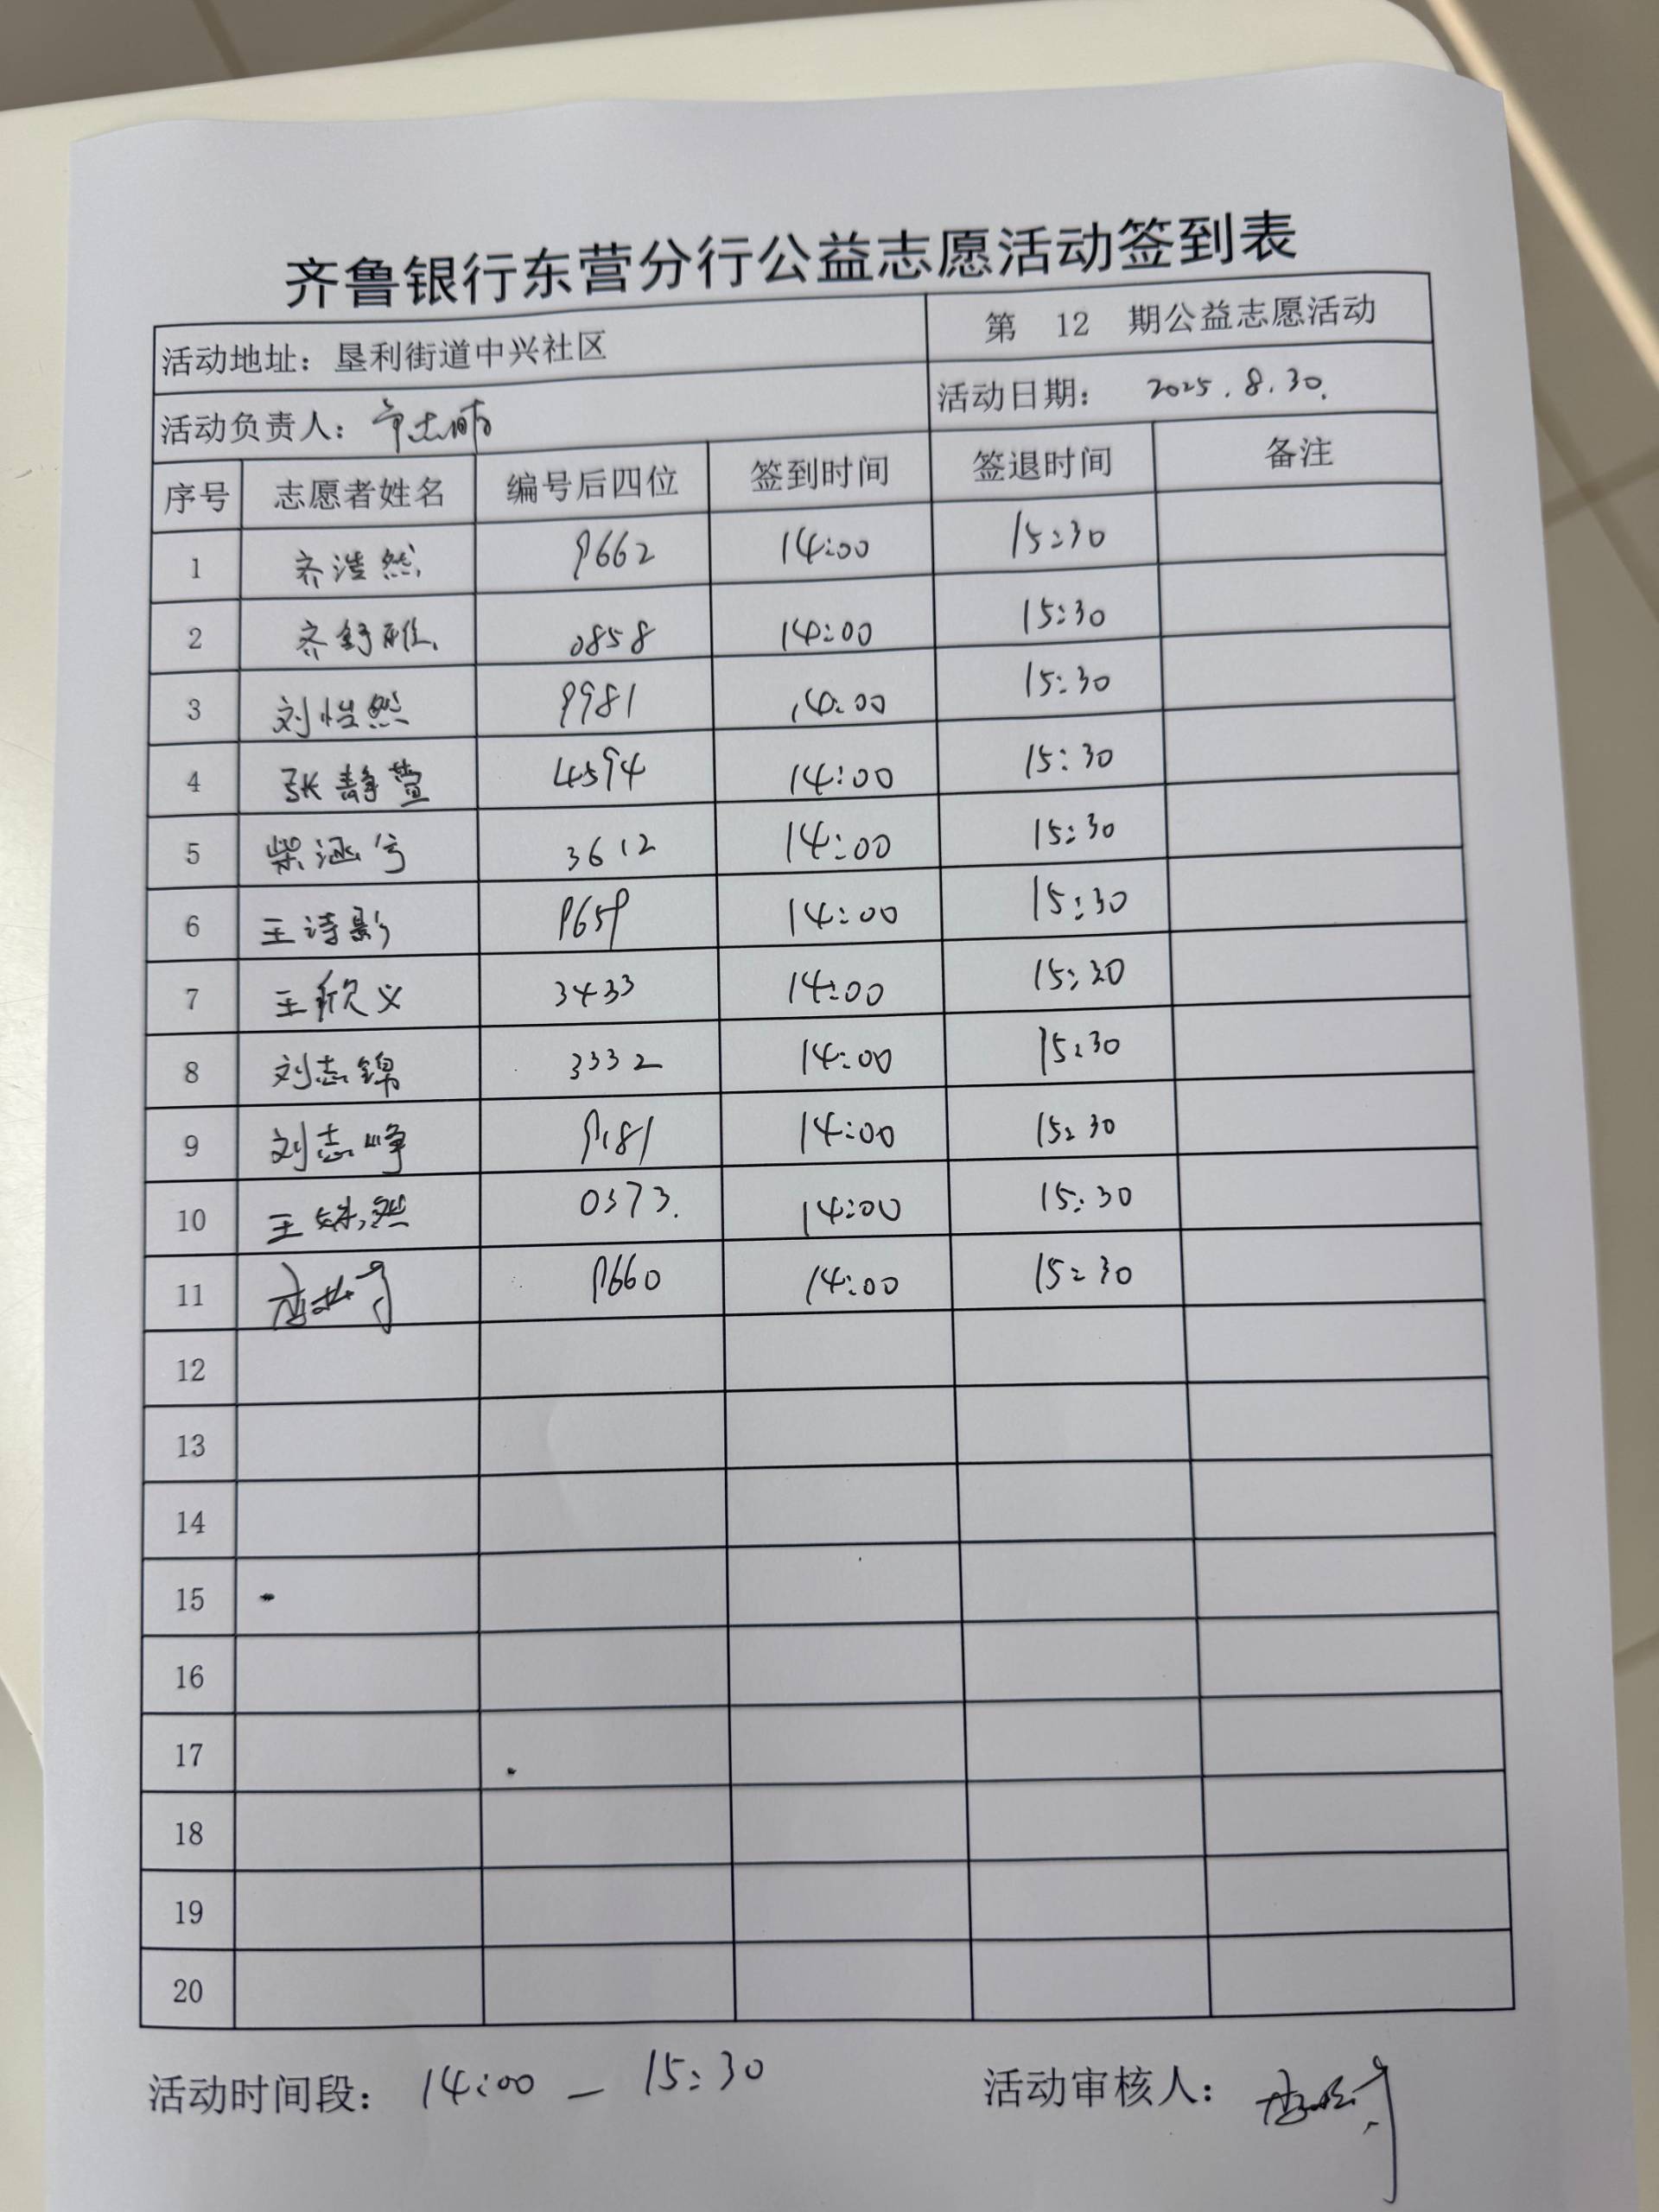 齐鲁银行东营分行公益志愿活动签到表
活动地址：垦利街道中兴社区 第 12 期公益志愿活动
活动负责人： 活动日期： 2025.8.30.
序号 志愿者姓名 编号后四位 签到时间 签退时间 备注
1 齐浩然 9662 14:00 15:30
2 齐舒雅 0858 14:00 15:30
3 刘恺然 9981 14:00 15:30
4 张静萱 4594 14:00 15:30
5 柴涵兮 3612 14:00 15:30
6 王诗影 9659 14:00 15:30
7 王欣义 3433 14:00 15:30
8 刘志锦 3332 14:00 15:30
9 刘志峥 9181 14:00 15:30
10 王姝然 0373. 14:00 15:30
11 9660 14:00 15:30
12
13
14
15
16
17
18
19
20
活动时间段： 14:00 — 15:30 活动审核人：